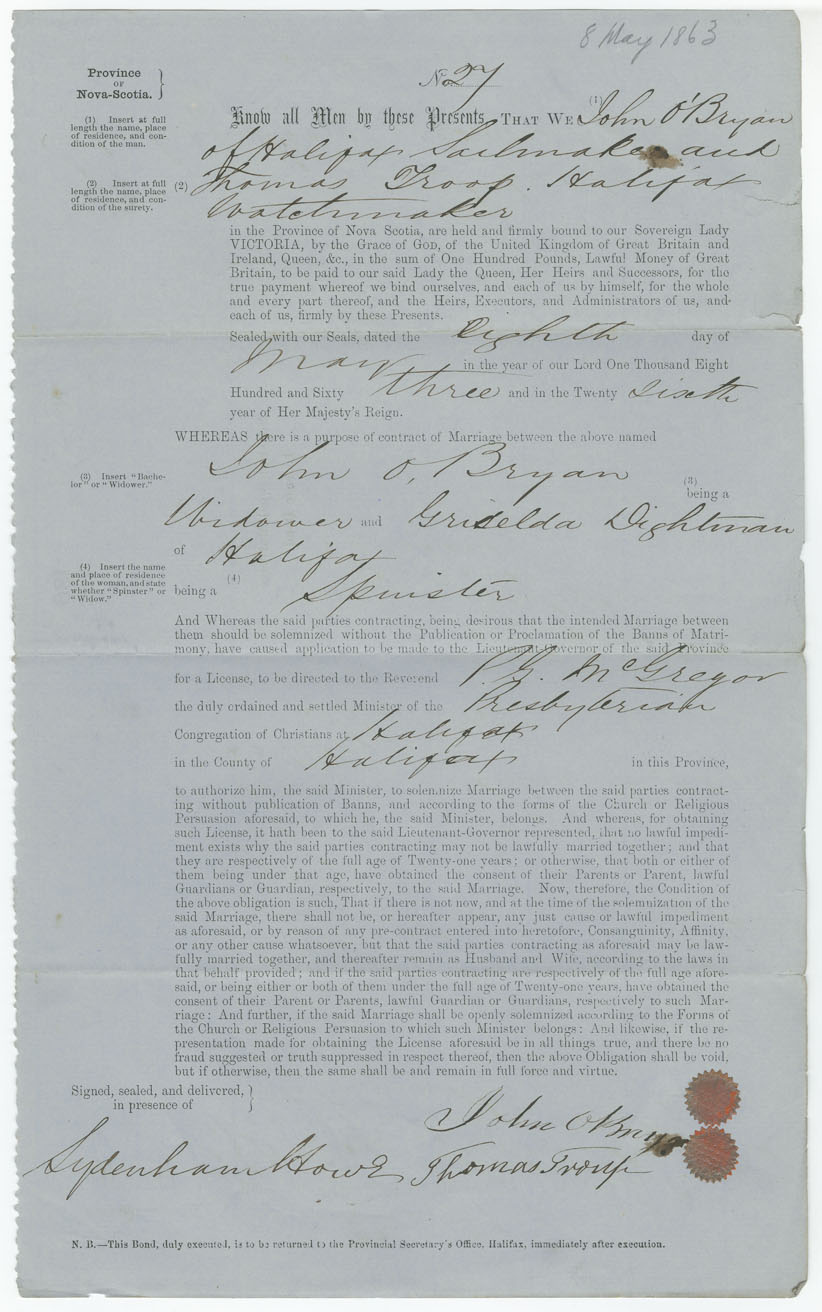 8 May 1863
Province
OF
Nova-Scotia.
No. 27
(1) Insert at full
length the name, place
of residence, and con-
dition of the man.
Know all Men by these Presents, THAT WE (1) John O'Bryan
of Halifax Sailmaker and
(2) Insert at full
length the name, place
of residence, and con-
dition of the surety.
(2) Thomas Troop. Halifax
Watchmaker
in the Province of Nova Scotia, are held and firmly bound to our Sovereign Lady
VICTORIA, by the Grace of GOD, of the United Kingdom of Great Britain and
Ireland, Queen, &c., in the sum of One Hundred Pounds, Lawful Money of Great
Britain, to be paid to our said Lady the Queen, Her Heirs and Successors, for the
true payment whereof we bind ourselves, and each of us by himself, for the whole
and every part thereof, and the Heirs, Executors, and Administrators of us, and
each of us, firmly by these Presents.
Sealed with our Seals, dated the Eighth day of
May in the year of our Lord One Thousand Eight
Hundred and Sixty three and in the Twenty sixth
year of Her Majesty's Reign.
WHEREAS there is a purpose of contract of Marriage between the above named
John O, Bryan
(3) Insert "Bache-
lor" or "Widower."
(3)
being a
Widower and Griselda Dightman
of Halifax
(4) Insert the name
and place of residence
of the woman, and state
whether "Spinster" or
"Widow."
(4)
being a Spinster
And Whereas the said parties contracting, being desirous that the intended Marriage between
them should be solemnized without the Publication or Proclamation of the Banns of Matri-
mony, have caused application to be made to the Lieutenant-Governor of the said Province
for a License, to be directed to the Reverend P. G. McGregor
the duly ordained and settled Minister of the Presbyterian
Congregation of Christians at Halifax
in the County of Halifax in this Province,
to authorize him, the said Minister, to solemnize Marriage between the said parties contract-
ing without publication of Banns, and according to the forms of the Church or Religious
Persuasion aforesaid, to which he, the said Minister, belongs. And whereas, for obtaining
such License, it hath been to the said Lieutenant-Governor represented, that no lawful impedi-
ment exists why the said parties contracting may not be lawfully married together; and that
they are respectively of the full age of Twenty-one years; or otherwise, that both or either of
them being under that age, have obtained the consent of their Parents or Parent, lawful
Guardians or Guardian, respectively, to the said Marriage. Now, therefore, the Condition of
the above obligation is such, That if there is not now, and at the time of the solemnization of the
said Marriage, there shall not be, or hereafter appear, any just cause or lawful impediment
as aforesaid, or by reason of any pre-contract entered into heretofore, Consanguinity, Affinity,
or any other cause whatsoever, but that the said parties contracting as aforesaid may be law-
fully married together, and thereafter remain as Husband and Wife, according to the laws in
that behalf provided; and if the said parties contracting are respectively of the full age afore-
said, or being either or both of them under the full age of Twenty-one years, have obtained the
consent of their Parent or Parents, lawful Guardian or Guardians, respectively to such Mar-
riage: And further, if the said Marriage shall be openly solemnized according to the Forms of
the Church or Religious Persuasion to which such Minister belongs: And likewise, if the re-
presentation made for obtaining the License aforesaid be in all things true, and there be no
fraud suggested or truth suppressed in respect thereof, then the above Obligation shall be void,
but if otherwise, then the same shall be and remain in full force and virtue.
Signed, sealed, and delivered,
in presence of
John O'Bryan
Sydenham Howe Thomas Troup
N. B.—This Bond, duly executed, is to be returned to the Provincial Secretary's Office, Halifax, immediately after execution.